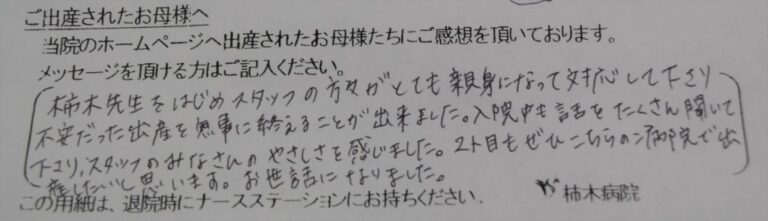 ご出産されたお母様へ
当院のホームページへ出産されたお母様たちにご感想を頂いております。
メッセージを頂ける方はご記入ください。
柿木先生をはじめスタッフの方々がとても親身になって対応して下さり
不安だった出産を無事に終えることが出来ました。入院中も話をたくさん聞いて
下さり、スタッフのみなさんのやさしさを感じました。2人目もぜひこちらの病院で出
産したいと思います。お世話になりました。
この用紙は、退院時にナースステーションにお持ちください。 柿木病院